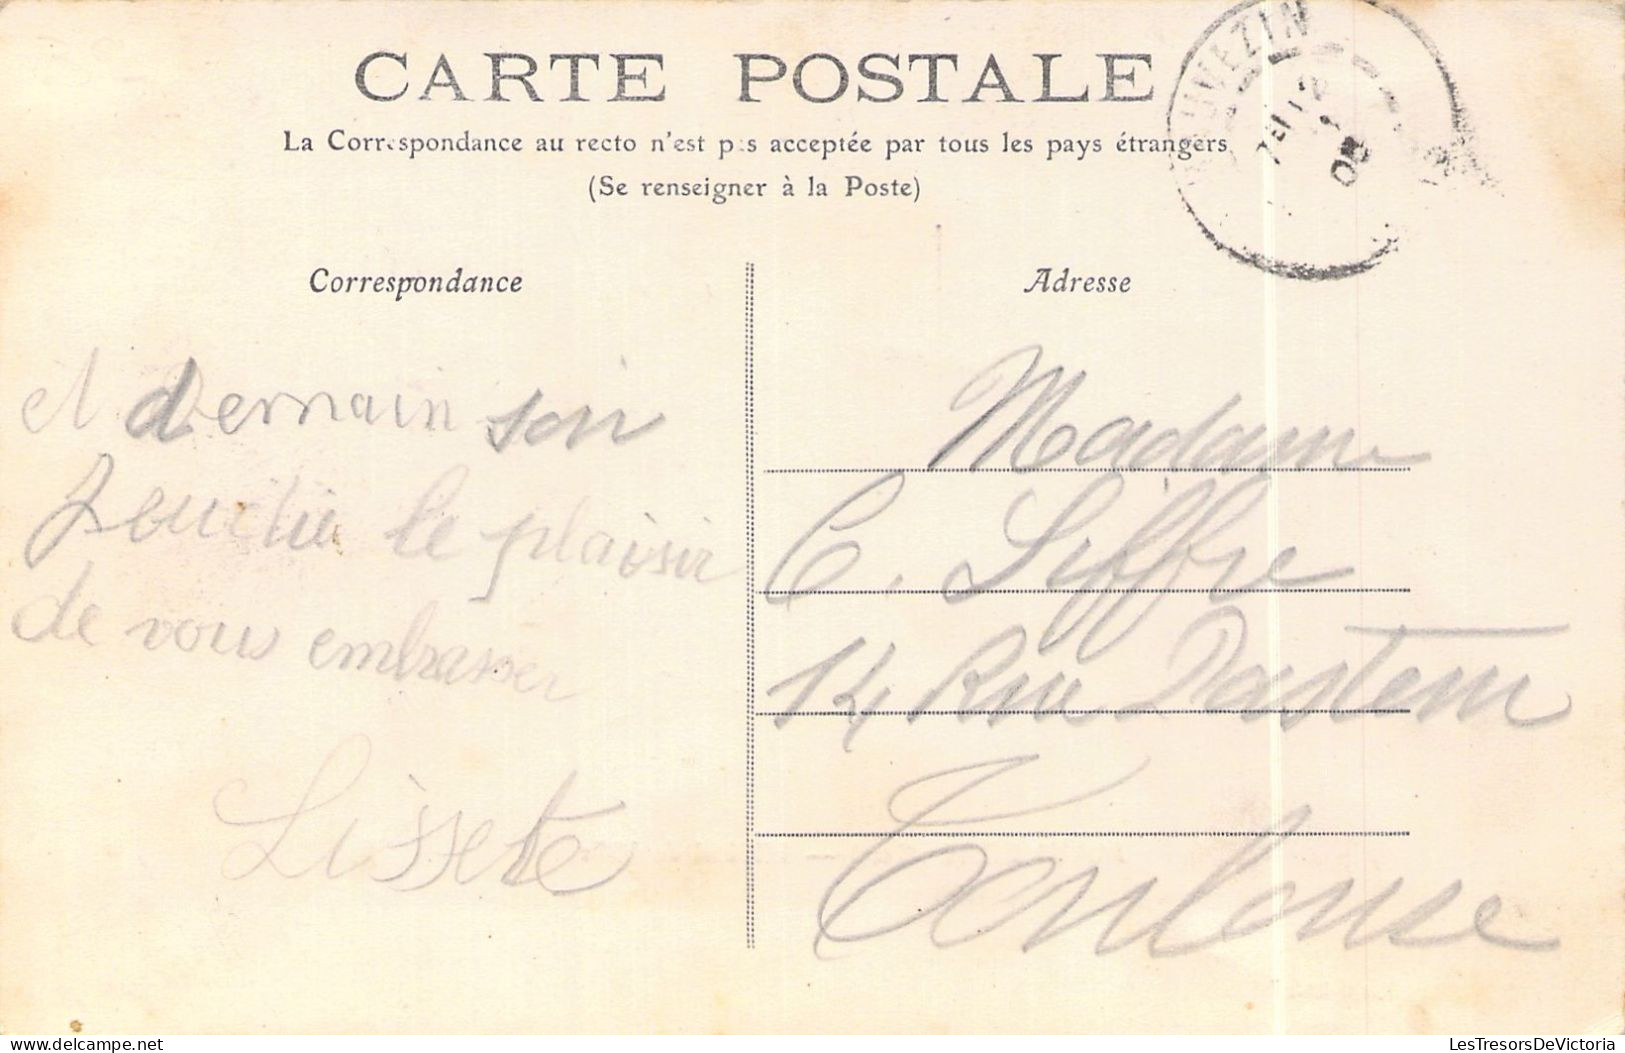 CARTE POSTALE
La Correspondance au recto n'est pas acceptée par tous les pays étrangers
(Se renseigner à la Poste)
UVEZIN
Correspondance
et demain soir
le plaisir
de vous embrasser
Lissete
Adresse
Madame
C. Siffre
14 Rue Pasteur
Toulouse
delcampe.net
LesTresorsDeVictoria